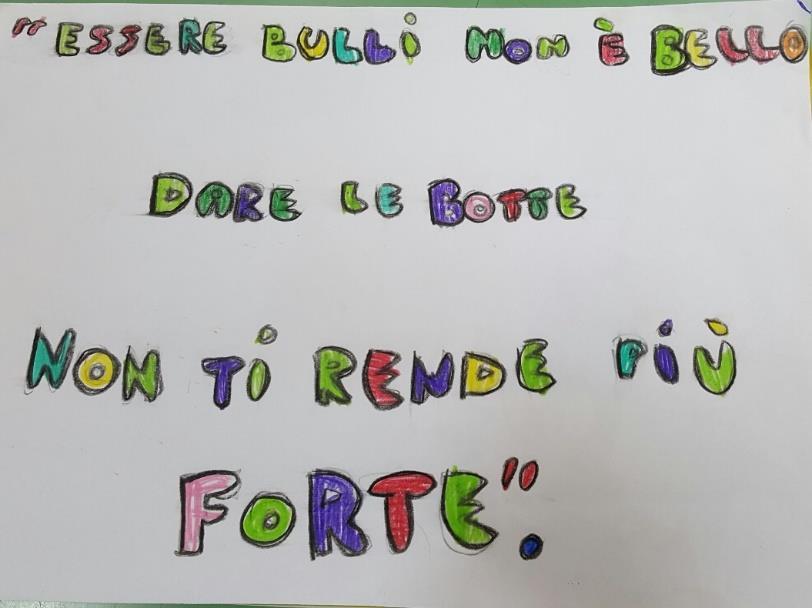 "ESSERE BULLI NON È BELLO
DARE LE BOTTE
NON TI RENDE PIÙ
FORTE".